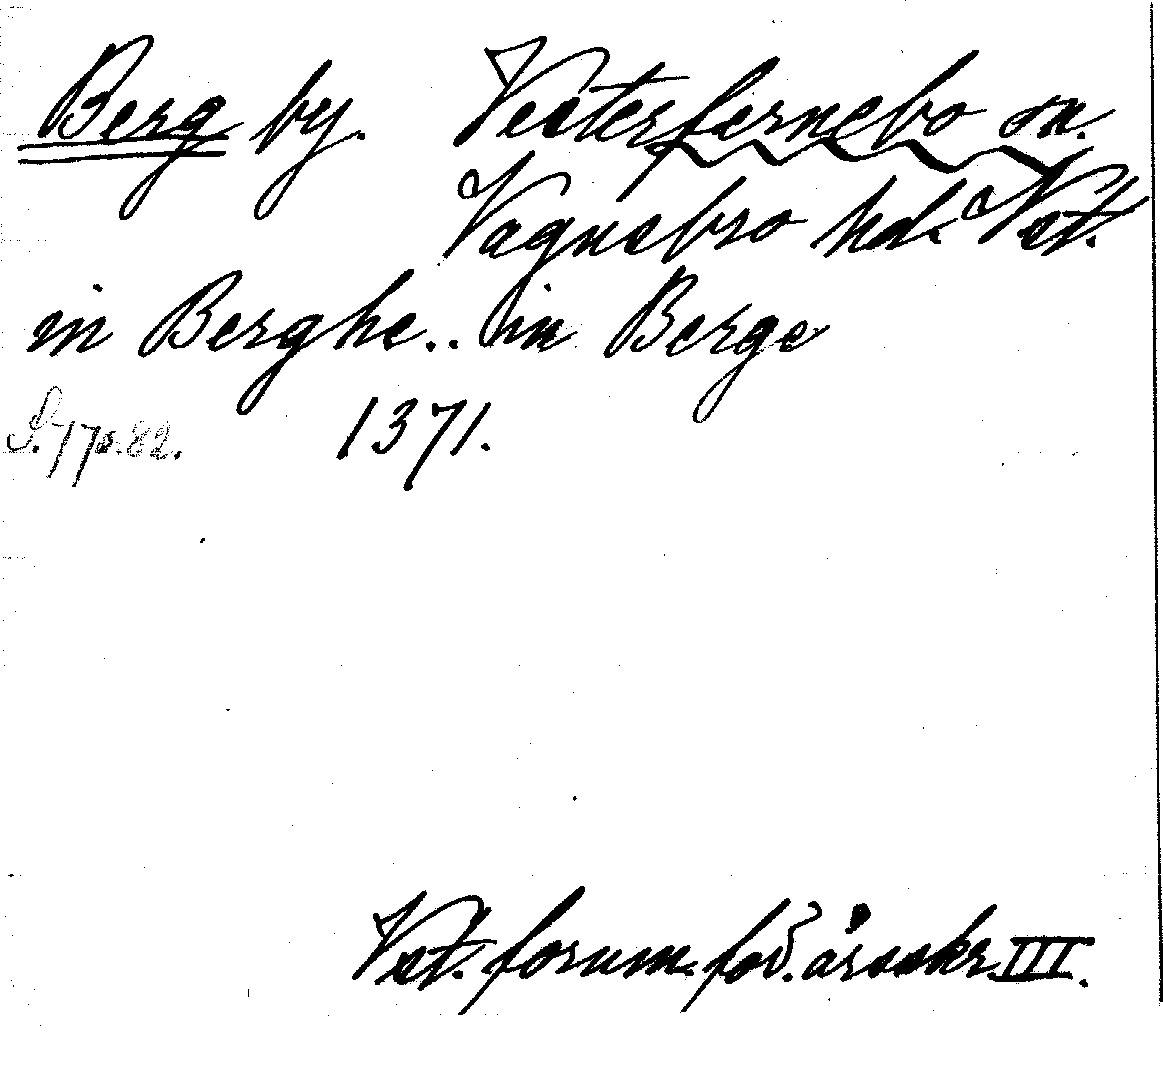 Berg by. Vesterfernebo sn.
Vagnsbro hd. Vst.
in Berghe.. in Berge
S. 17 s. 82. 1371.
Vst. fornm.för. årsskr. III.